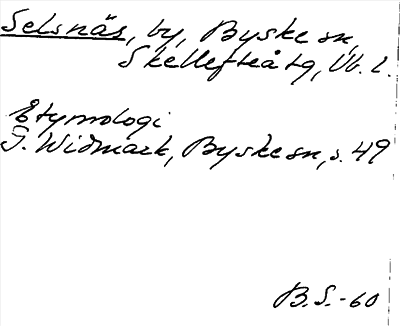 Selsnäs, by, Byske sn,
Skellefteå tg, Vb. l.
Etymologi
G. Widmark, Byske sn, s. 49
B.S.-60